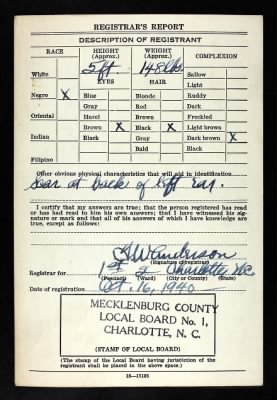 REGISTRAR'S REPORT
DESCRIPTION OF REGISTRANT
RACE HEIGHT (Approx.) WEIGHT (Approx.) COMPLEXION
White 5 ft 148 lbs. Sallow
EYES HAIR Light
Negro X Blue Blonde Ruddy
Gray Red Dark
Oriental Hazel Brown Freckled
Brown X Black X Light brown
Indian Black Gray Dark brown X
Bald Black
Filipino
Other obvious physical characteristics that will aid in identification
Scar at back of left Ear.
I certify that my answers are true; that the person registered has read
or has had read to him his own answers; that I have witnessed his sig-
nature or mark and that all of his answers of which I have knowledge are
true, except as follows:
Anderson
(Signature of registrar)
Registrar for 1st 2 Charlotte N.C.
(Precinct) (Ward) (City or County) (State)
Date of registration Oct. 16, 1940
MECKLENBURG COUNTY
LOCAL BOARD No. 1,
CHARLOTTE, N. C.
(STAMP OF LOCAL BOARD)
(The stamp of the Local Board having jurisdiction of the
registrant shall be placed in the above space.)